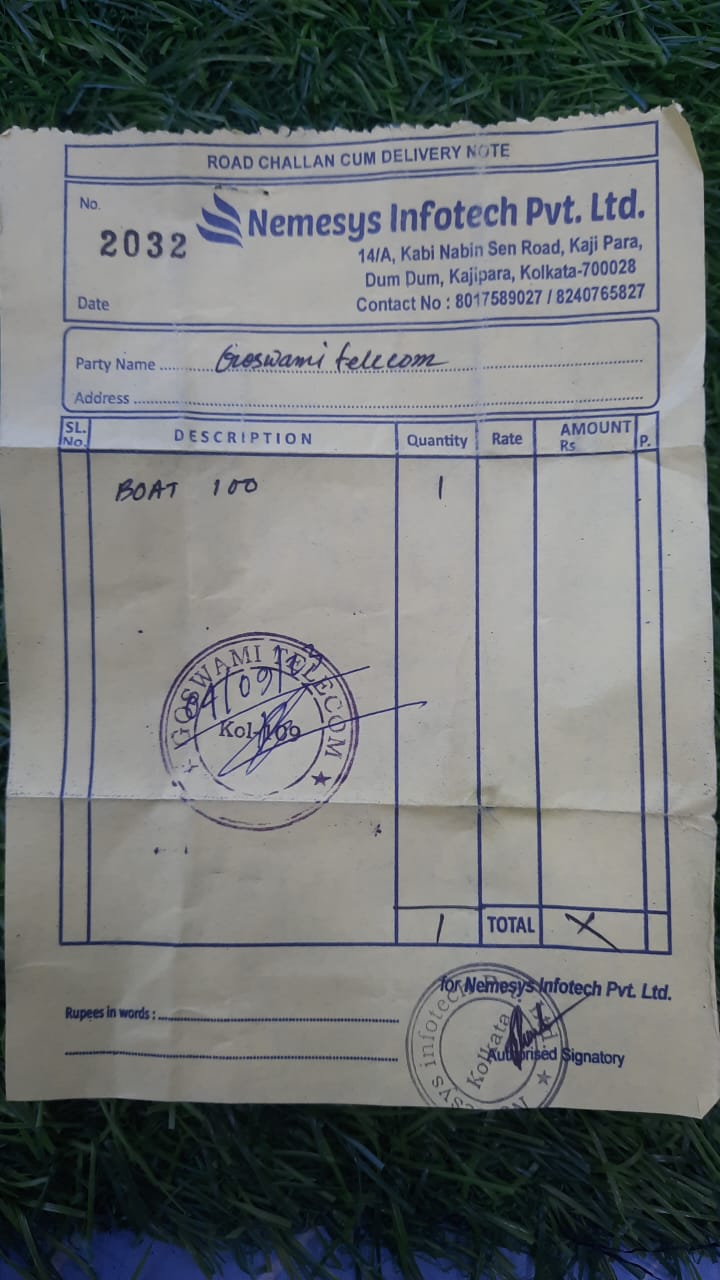 ROAD CHALLAN CUM DELIVERY NOTE
No.
2032
Nemesys Infotech Pvt. Ltd.
14/A, Kabi Nabin Sen Road, Kaji Para,
Dum Dum, Kajipara, Kolkata-700028
Date
Contact No : 8017589027 / 8240765827
Party Name Goswami telecom
Address
SL. No. DESCRIPTION Quantity Rate AMOUNT Rs P.
BOAT 100 1
GOSWAMI TELECOM
04/09/
Kol-109
1 TOTAL X
for Nemesys Infotech Pvt. Ltd.
Rupees in words :
Kolkata
Authorised Signatory